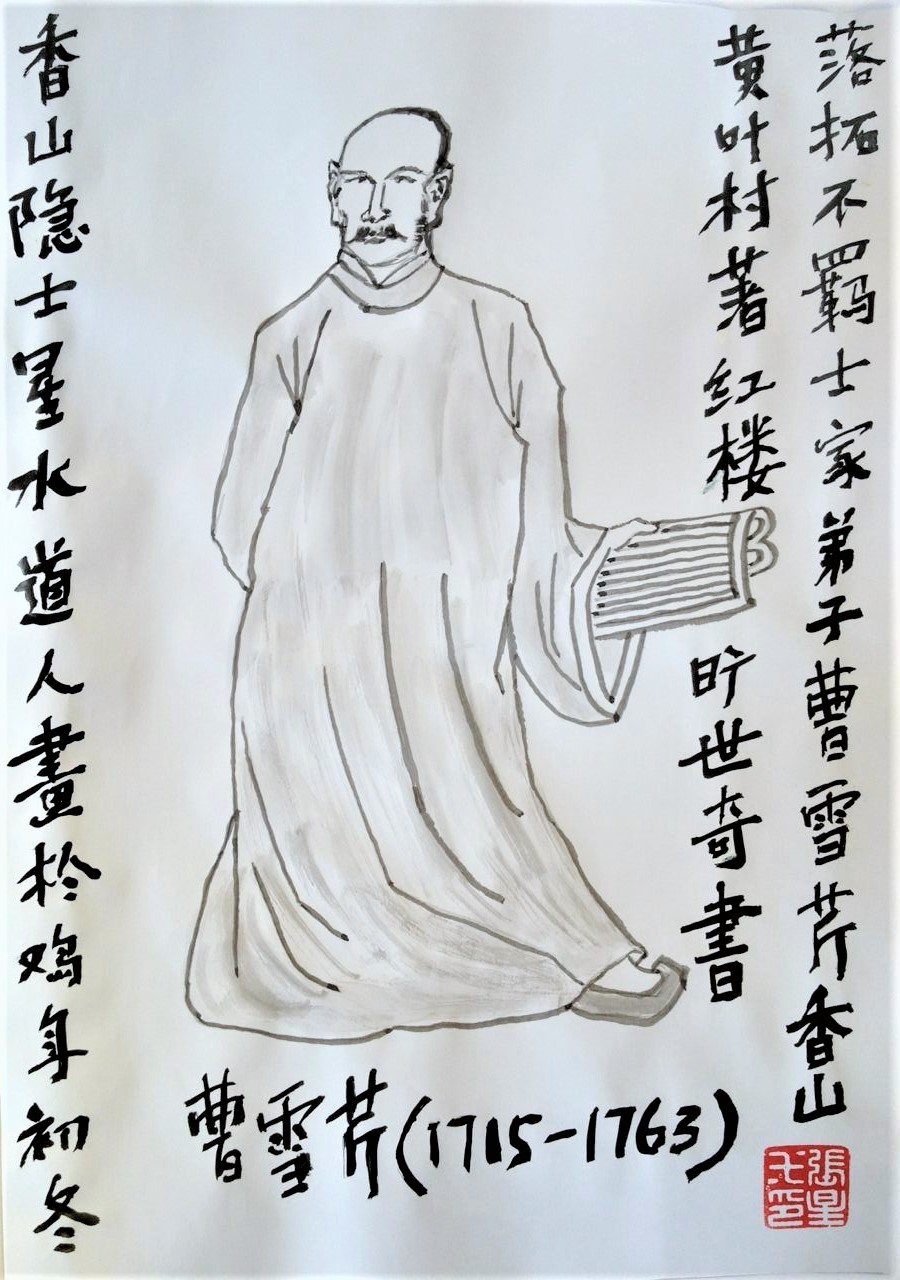 落拓不羁士家弟子曹雪芹香山
黄叶村著红楼
旷世奇書
曹雪芹(1715-1763)
香山隐士星水道人畫於鸡年初冬
張星
印